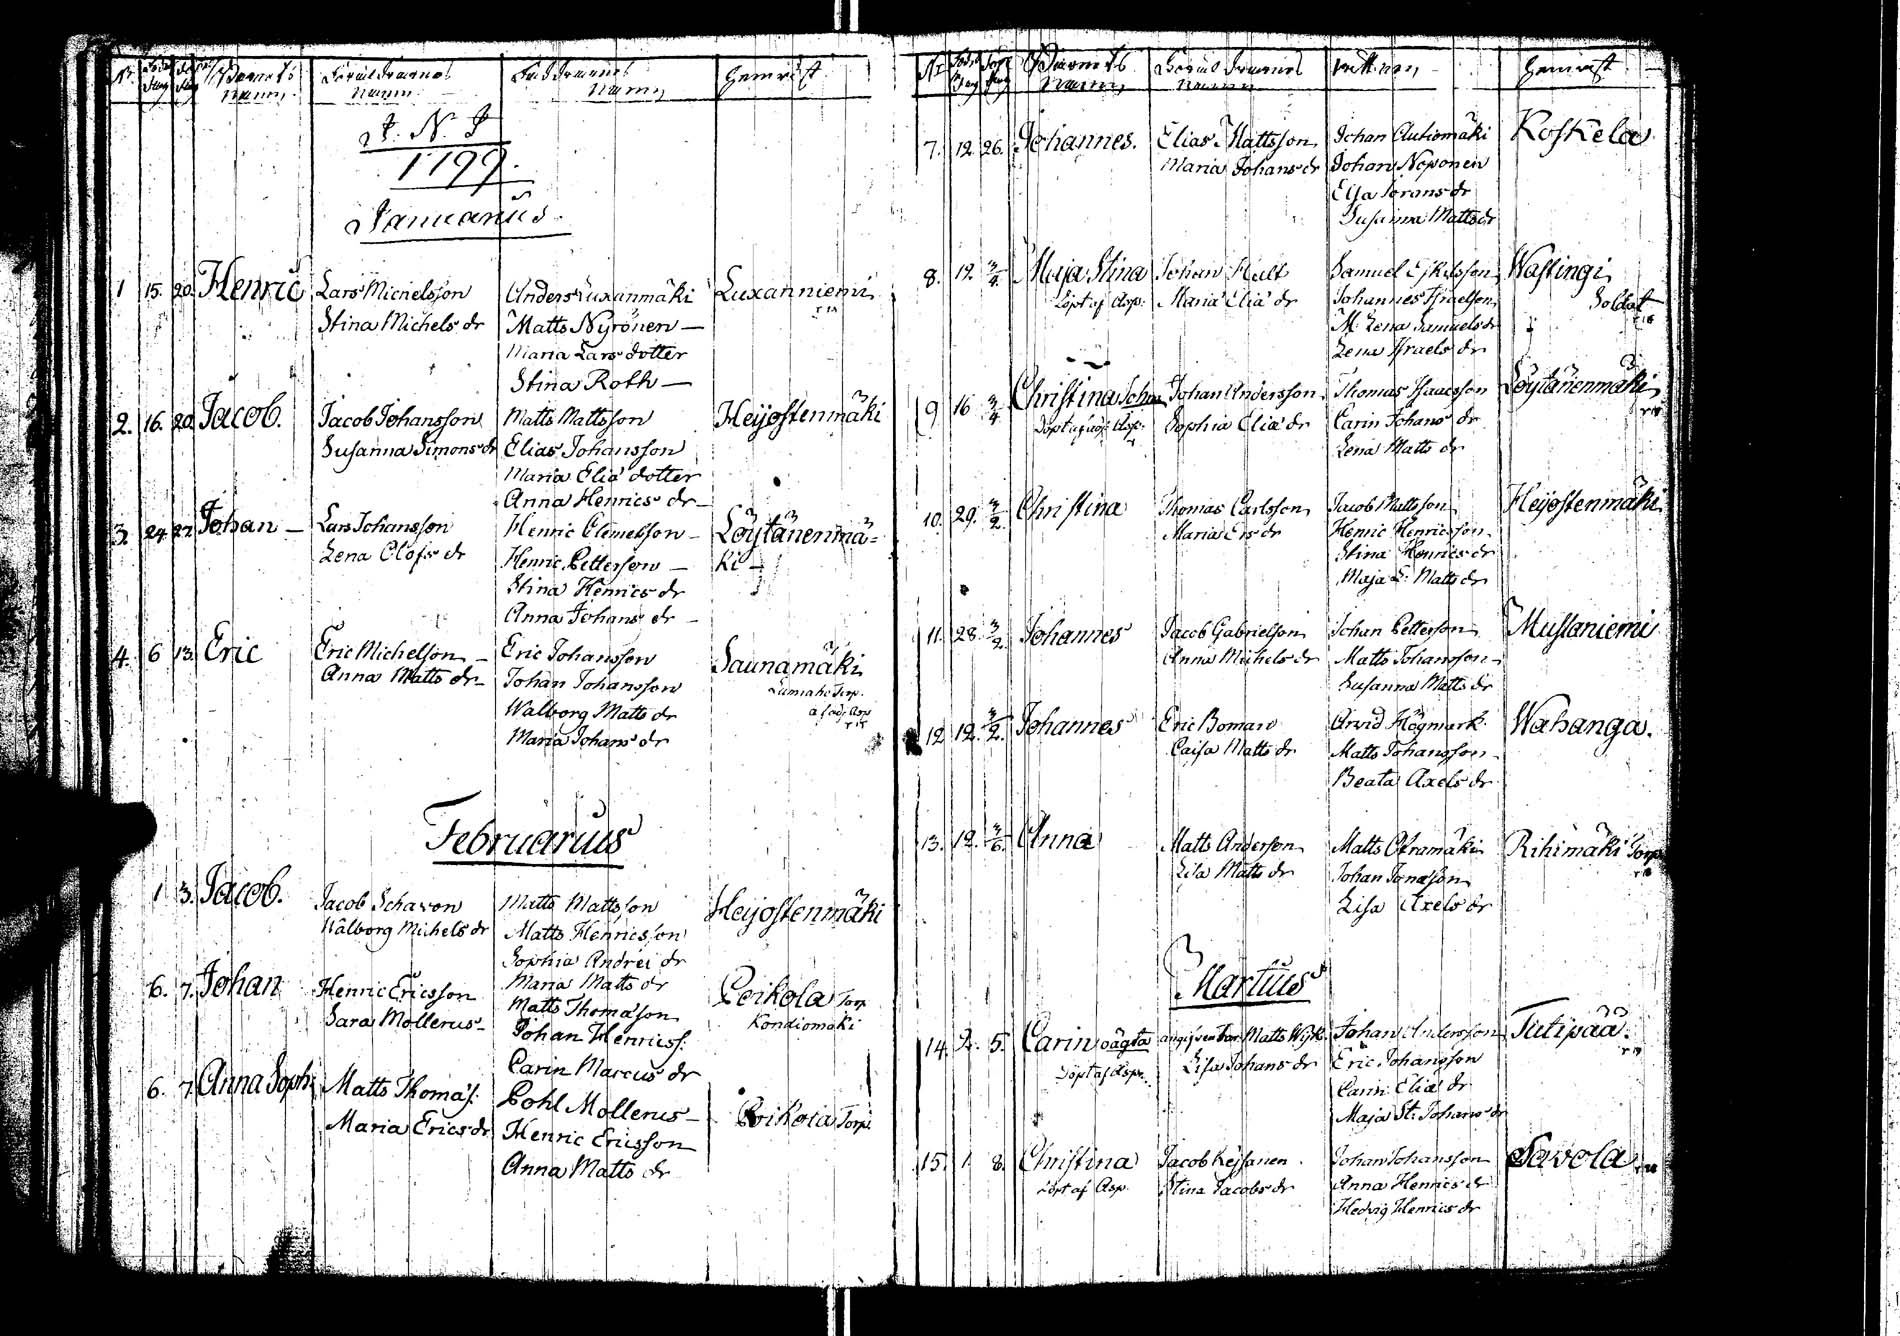 Nr. Barnets Föräldrarnas Faddrarnas Hemvist
namn namn namn
J. N. J
1799.
Januarius.
1 15. 20. Henric Lars Michelsson Anders Luxanmäki Luxanniemi
Stina Michels dr Matts Nyrönen —
Maria Lars dotter
Stina Roth —
2. 16. 20. Jacob. Jacob Johansson Matts Mattsson Heijostenmäki
Susanna Simons dr Elias Johansson
Maria Eliä dotter
Anna Henrics dr —
3. 24. 27. Johan — Lars Johansson Henric Clemetsson — Löytänenmä=
Lena Olofs dr Henric Pettersson — ki —
Stina Henrics dr
Anna Johans dr —
4. 6 13. Eric Eric Michelsson — Eric Johansson Saunamäki
Anna Matts dr — Johan Johansson
Walborg Matts dr
Maria Johans dr
Februarius
1 3. Jacob. Jacob Schavon Matts Mattsson Heijostenmäki
Walborg Michels dr Matts Henricsson
Sophia Andrei dr
Maria Matts dr
6. 7. Johan Henric Ericsson Matts Thomason Poikola Torp
Sara Mollerus — Johan Henricss. Kondiomäki
Carin Marcus dr
6. 7. Anna Soph: Matts Thomas. Pohl Mollerus — Poikola Torp.
Maria Erics dr Henric Ericsson
Anna Matts dr
Nr Barnets Föräldrarnes Hemvist
namn namn
7. 12. 26. Johannes. Elias Mattsson Johan Autiomäki Koskela
Maria Johans dr Johan Noponen
Susanna Matts dr
8. 12 3/4. Maja Stina Johan Hult Samuel Eskelsson Wastingi
Döpt af Asp. Maria Eliä dr Johannes Israelsson Soldat
M. Lena Samuels dr
Lena Israels dr
9 16 3/4 Christina Johan Andersson Thomas Isaacsson Löytänenmäki
Sophia Eliä dr Carin Johans dr
Lena Matts dr
10. 29. 3/2. Christina Thomas Carlsson Jacob Mattsson Heijostenmäki
Maria Ers dr Henric Henricsson
Stina Henrics dr
Maja L: Matts dr
11. 28. 3/2. Johannes Jacob Gabrielsson Johan Pettersson Mustaniemi
Anna Michels dr Matts Johansson
Susanna Matts dr
12. 12. 3/2. Johannes Eric Boman Arvid Högmark. Wahanga.
Caisa Matts dr Matts Johansson
Beata Axels dr
13. 12. 3/6. Anna Matts Anderson Matts Oframäki Rihimäki Torp
Lisa Matts dr Johan Jonasson
Lisa Axels dr
Martius
14. 2. 5. Carin oägta angifven far Matts Wijk. Johan Andersson Tutipää.
Döpt af Asp. Lisa Johans dr Eric Johansson
Carin Eliä dr
Maja St. Johans dr
15. 1. 8. Christina Jacob Keysanen. Johan Johansson Savola
Döpt af Asp. Stina Jacobs dr Anna Henrics dr
Hedvig Henrics dr